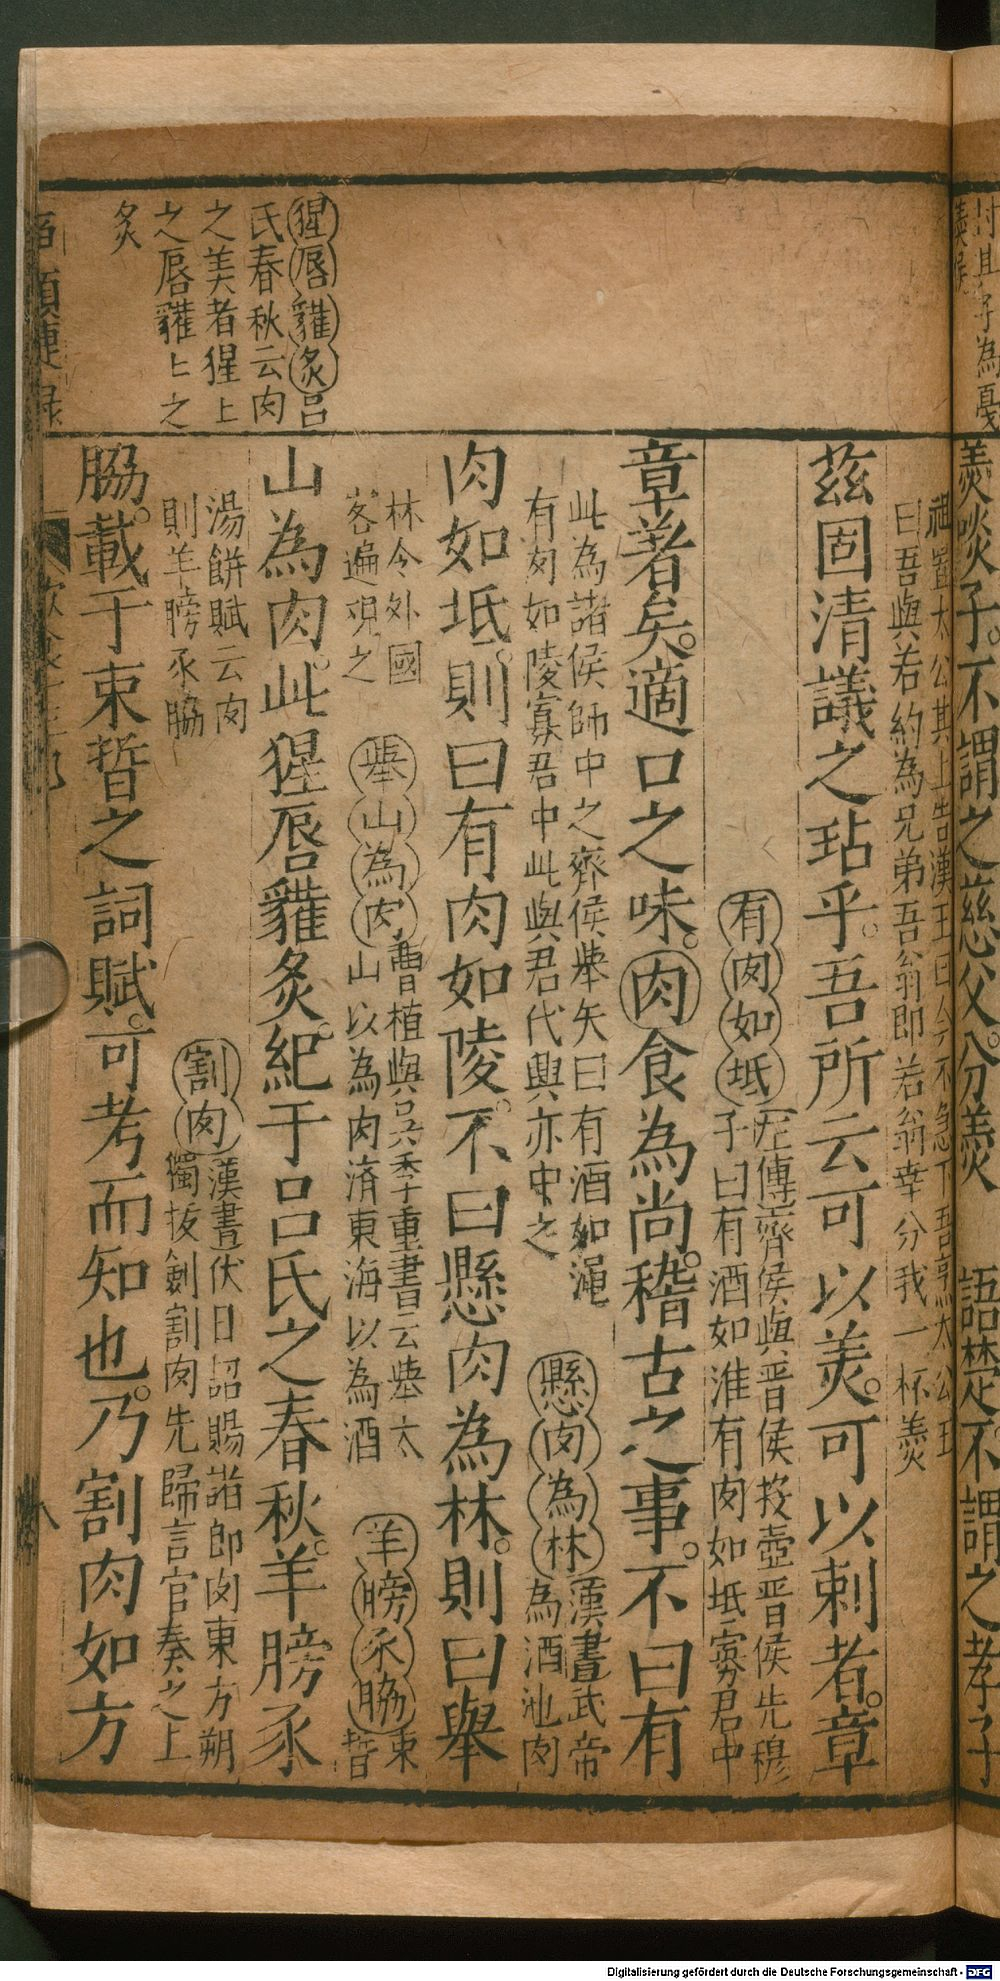 封其子為戛
羮侯
羮啖子。不謂之慈父。分羮　語楚不謂之孝子
祖置太公其上告漢王曰今不急下吾烹太公王
曰吾與若約為兄弟吾翁即若翁幸分我一杯羮
茲固清議之玷乎。吾所云可以羮。可以刺者。章
有肉如坻左傳齊侯與晉侯投壺晉侯先穆
子曰有酒如淮有肉如坻寡君中
章著矣。適口之味。肉食為尚。稽古之事。不曰有
此為諸侯師中之齊侯舉矢曰有酒如澠
有肉如陵寡君中此與君代興亦中之
懸肉為林漢書武帝
為酒池肉
肉如坻。則曰有肉如陵。不曰懸肉為林。則曰舉
林令外國
客遍視之
舉山為肉曹植與吳季重書云舉太
山以為肉済東海以為酒
羊膀豕脇束
晳
山為肉。此猩唇貛炙。紀于呂氏之春秋。羊膀豕
湯餅賦云肉
則羊膀豕脇
割肉漢書伏日詔賜諸郎肉東方朔
獨拔劍割肉先歸言官奏之上
脇。載于束晳之詞賦。可考而知也。乃割肉如方
猩唇貛炙呂
氏春秋云肉
之美者猩上
之唇貛上之
炙
八
Digitalisierung gefördert durch die Deutsche Forschungsgemeinschaft - DFG